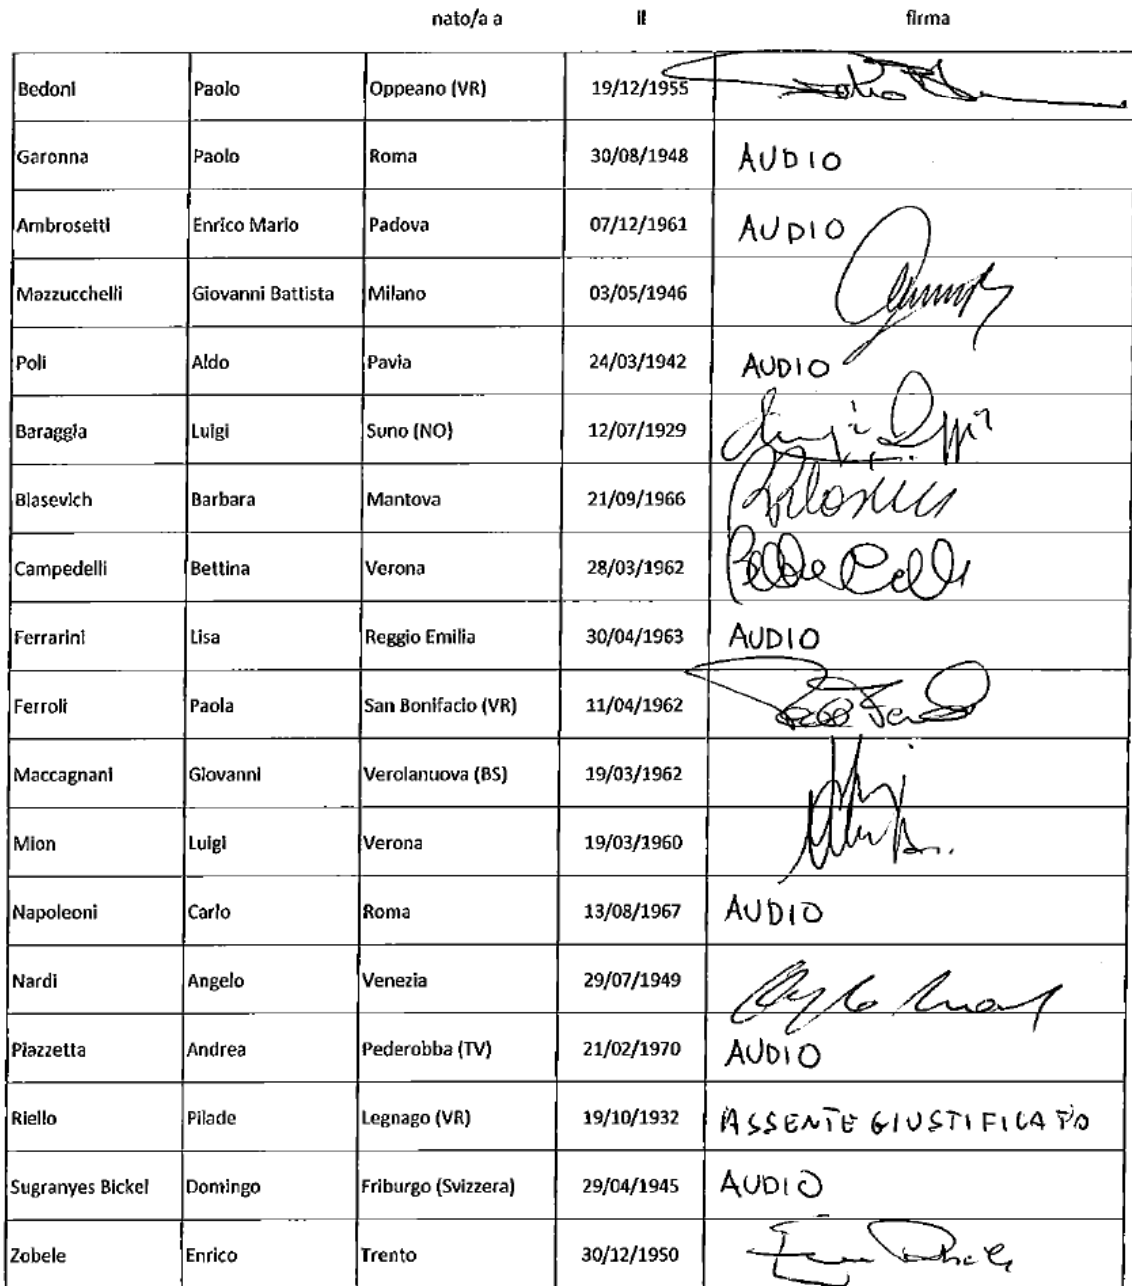 nato/a a il firma
Bedoni Paolo Oppeano (VR) 19/12/1955
Garonna Paolo Roma 30/08/1948 AUDIO
Ambrosetti Enrico Mario Padova 07/12/1961 AUDIO
Mazzucchelli Giovanni Battista Milano 03/05/1946
Poli Aldo Pavia 24/03/1942 AUDIO
Baraggia Luigi Suno (NO) 12/07/1929
Blasevich Barbara Mantova 21/09/1966
Campedelli Bettina Verona 28/03/1962
Ferrarini Lisa Reggio Emilia 30/04/1963 AUDIO
Ferroli Paola San Bonifacio (VR) 11/04/1962
Maccagnani Giovanni Verolanuova (BS) 19/03/1962
Mion Luigi Verona 19/03/1960
Napoleoni Carlo Roma 13/08/1967 AUDIO
Nardi Angelo Venezia 29/07/1949
Piazzetta Andrea Pederobba (TV) 21/02/1970 AUDIO
Riello Pilade Legnago (VR) 19/10/1932 ASSENTE GIUSTIFICATO
Sugranyes Bickel Domingo Friburgo (Svizzera) 29/04/1945 AUDIO
Zobele Enrico Trento 30/12/1950